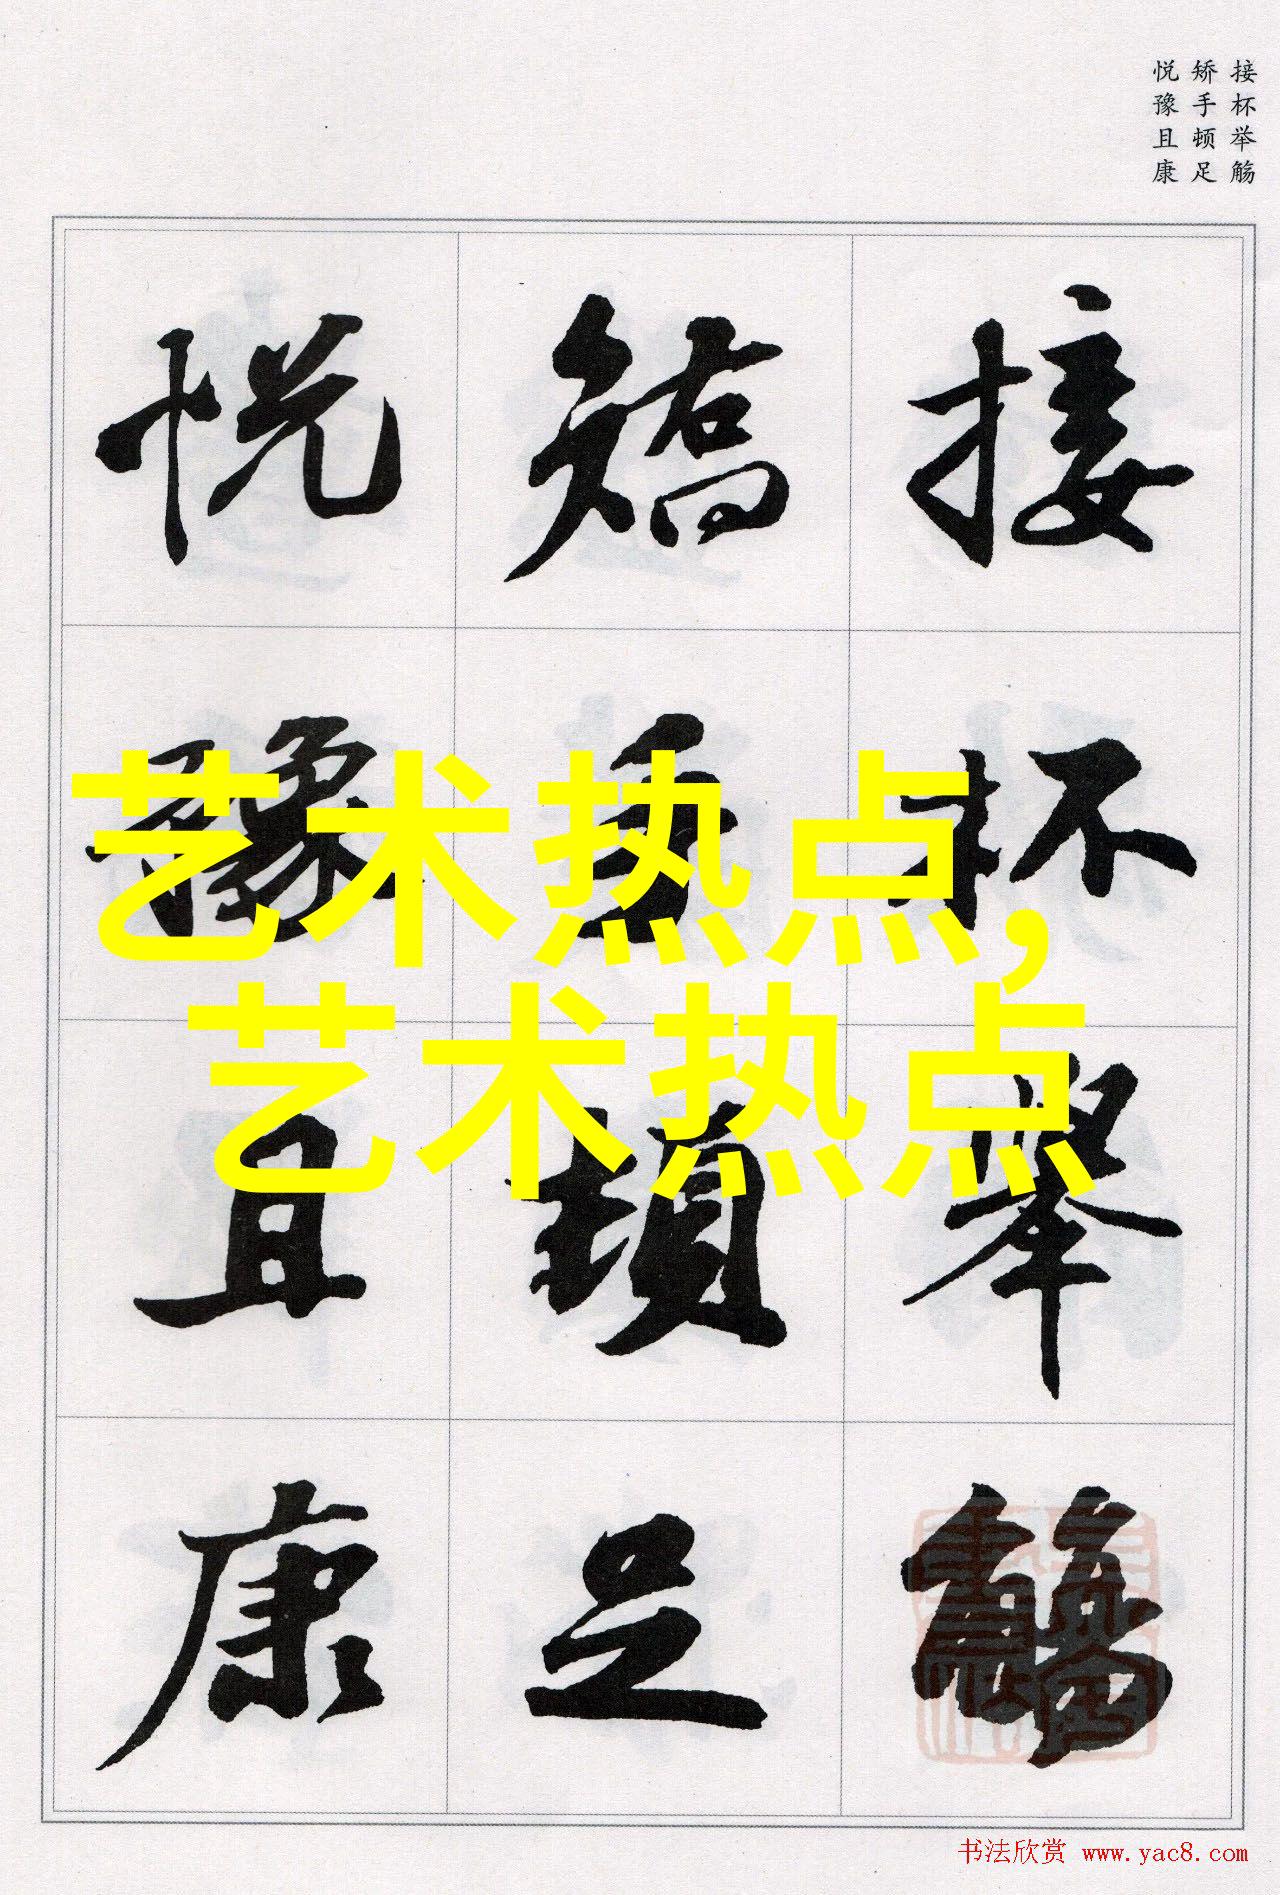 接杯举觞
矫手顿足
悦豫且康
接杯舉觴
矯手頓足
悦豫且康
艺术热点,
艺术热点
书法欣赏 www.yac8.com